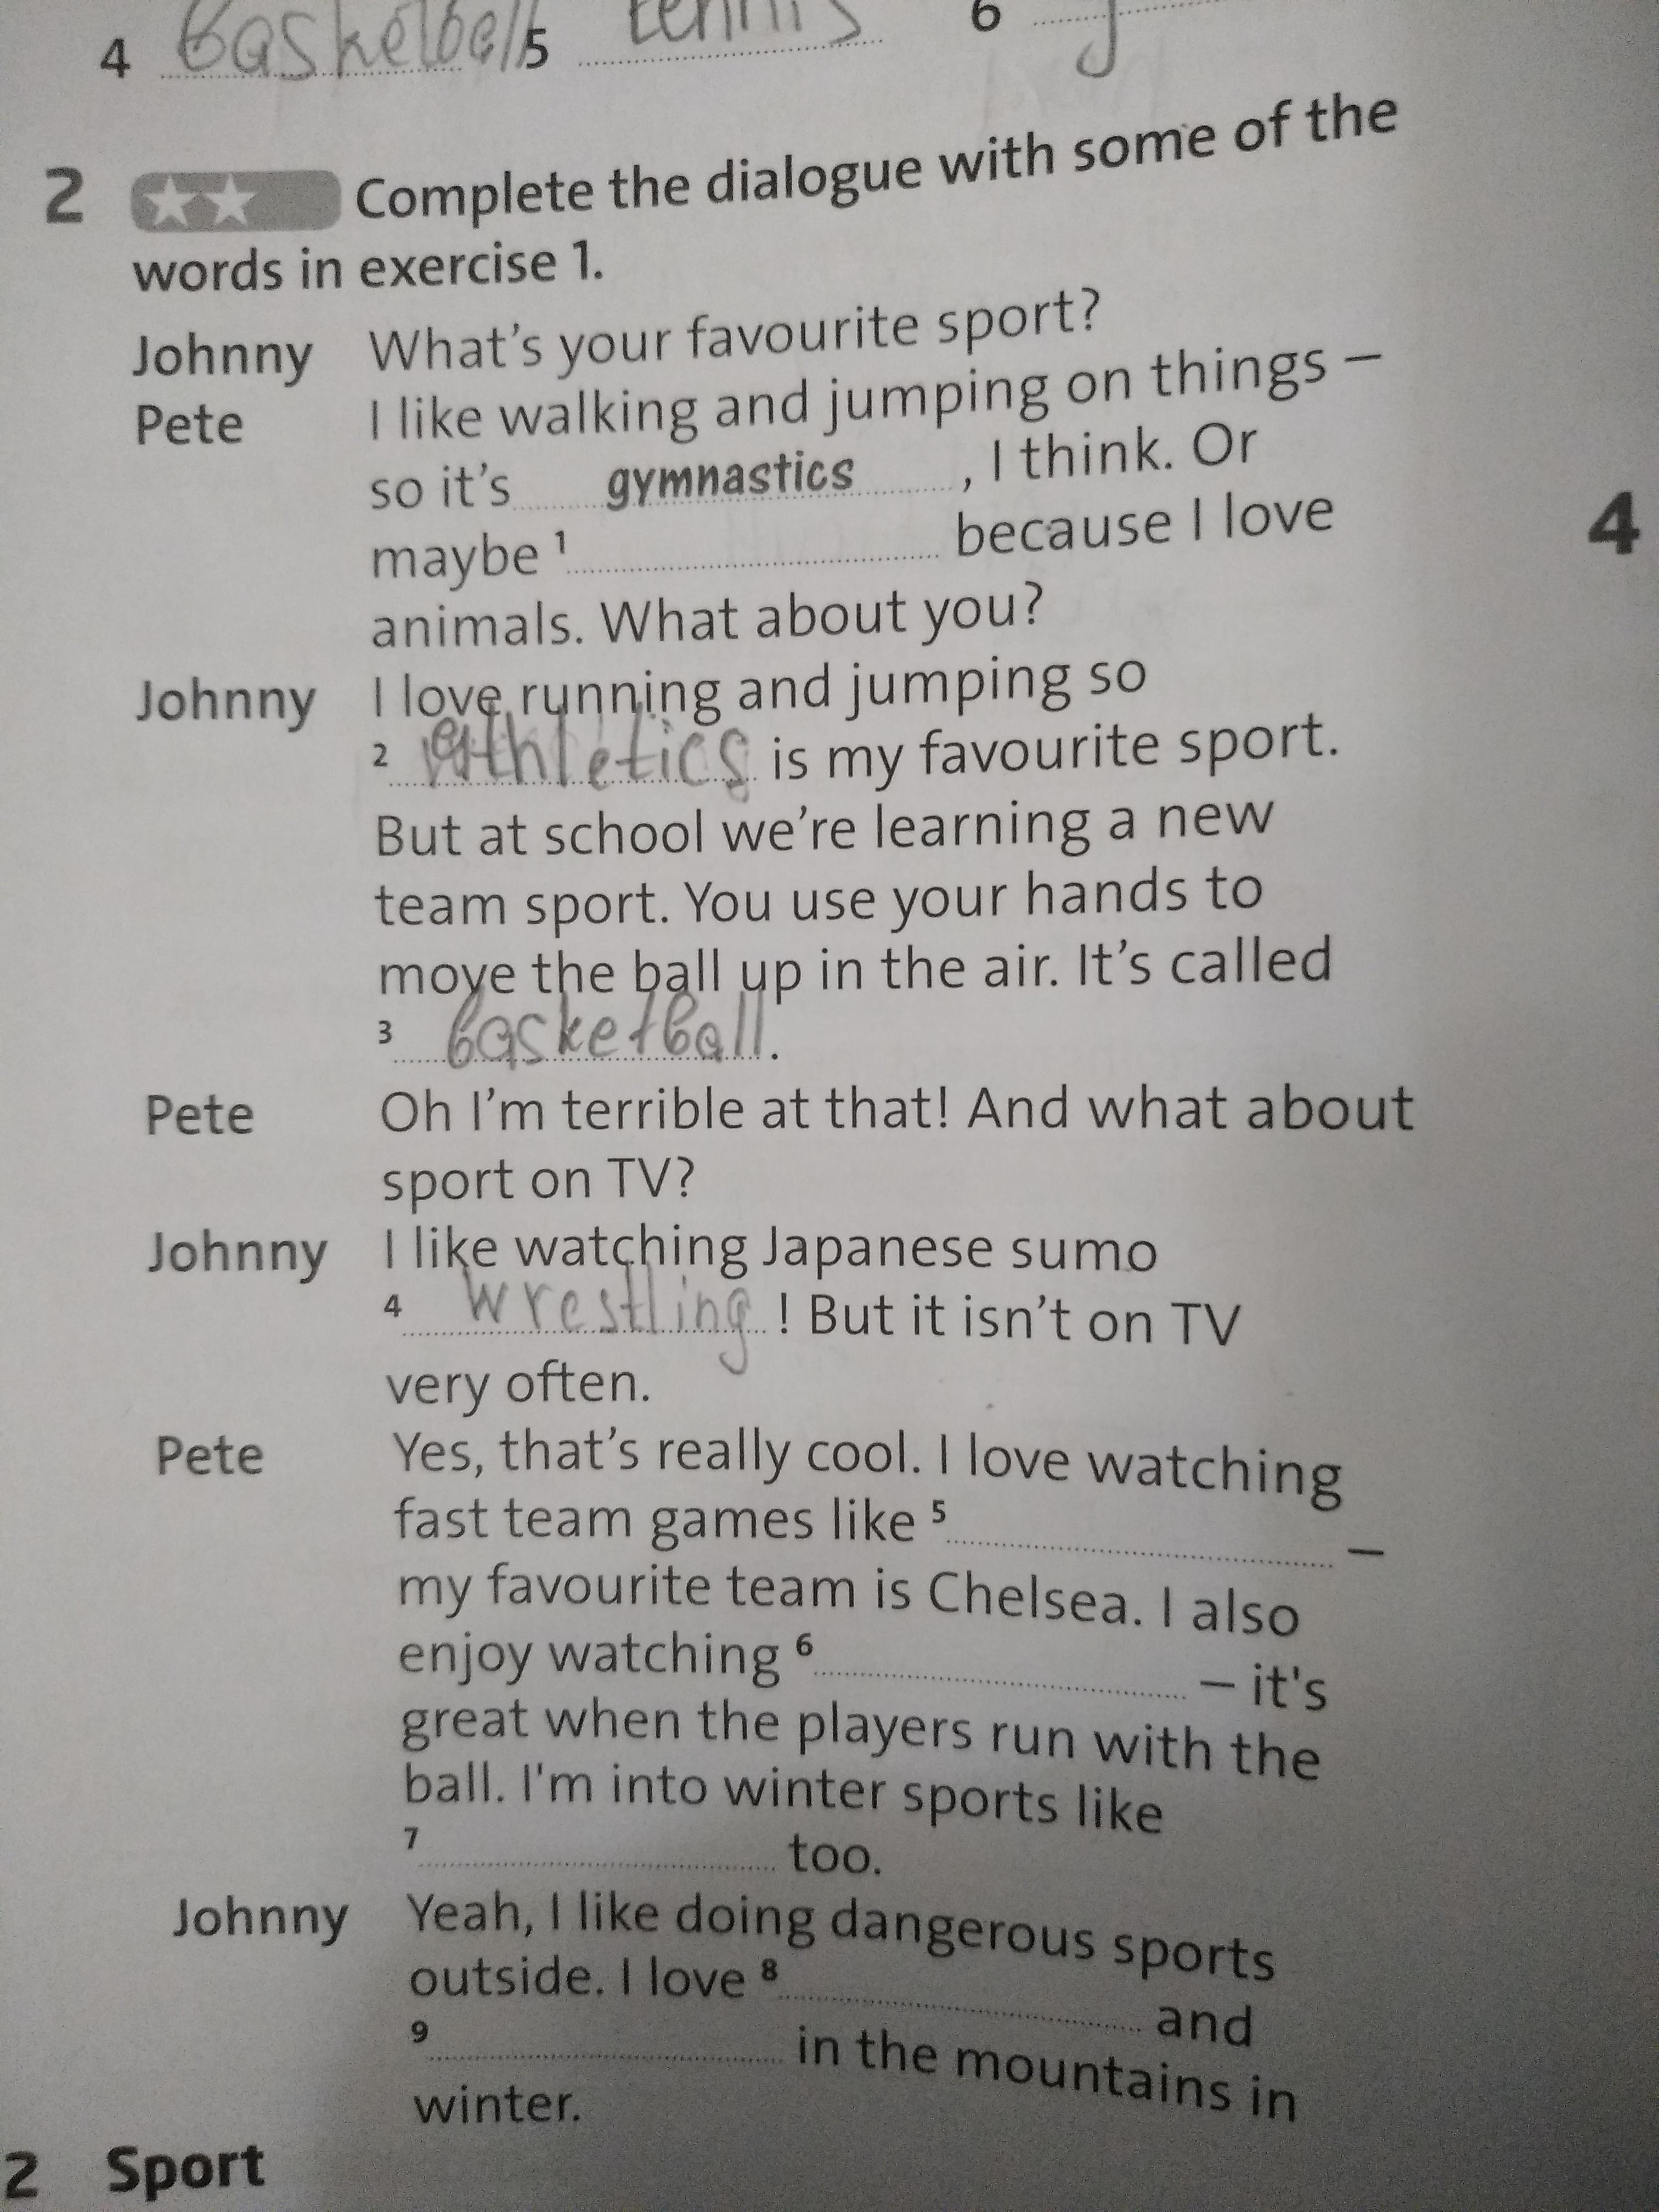 4 baskelball 5 tennis 6
2 Complete the dialogue with some of the
words in exercise 1.
Johnny What's your favourite sport?
Pete I like walking and jumping on things –
so it's gymnastics, I think. Or
maybe 1 because I love
animals. What about you?
Johnny I love running and jumping so
2 athletics is my favourite sport.
But at school we're learning a new
team sport. You use your hands to
move the ball up in the air. It's called
3 basketball.
Pete Oh I'm terrible at that! And what about
sport on TV?
Johnny I like watching Japanese sumo
4 wrestling! But it isn't on TV
very often.
Pete Yes, that's really cool. I love watching
fast team games like 5 –
my favourite team is Chelsea. I also
enjoy watching 6 – it's
great when the players run with the
ball. I'm into winter sports like
7 too.
Johnny Yeah, I like doing dangerous sports
outside. I love 8 and
9 in the mountains in
winter.
2 Sport
4